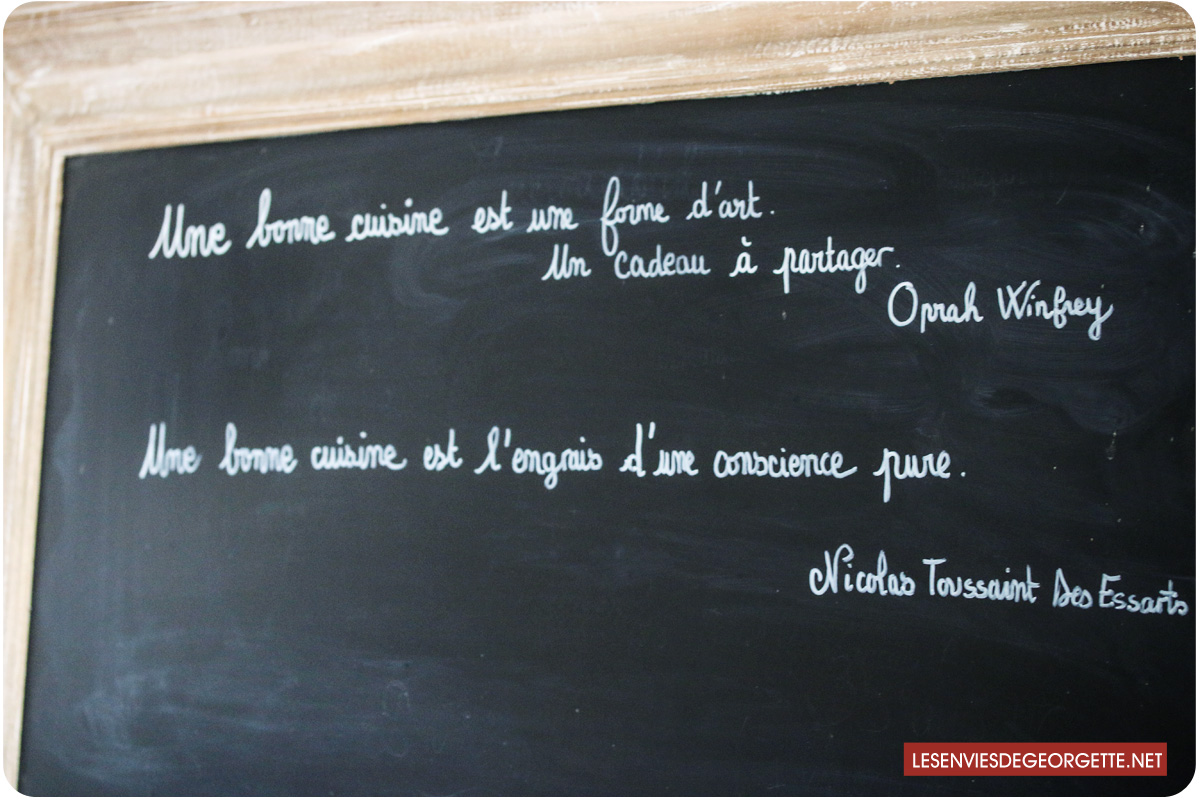 Une bonne cuisine est une forme d'art.
Un cadeau à partager.
Oprah Winfrey
Une bonne cuisine est l'engrais d'une conscience pure.
Nicolas Toussaint Des Essarts
LESENVIESDEGEORGETTE.NET